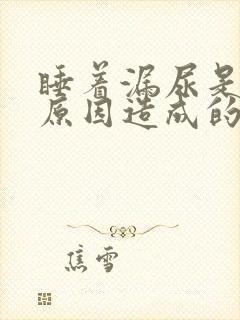 睡着漏尿是
原因造成的
焦雪